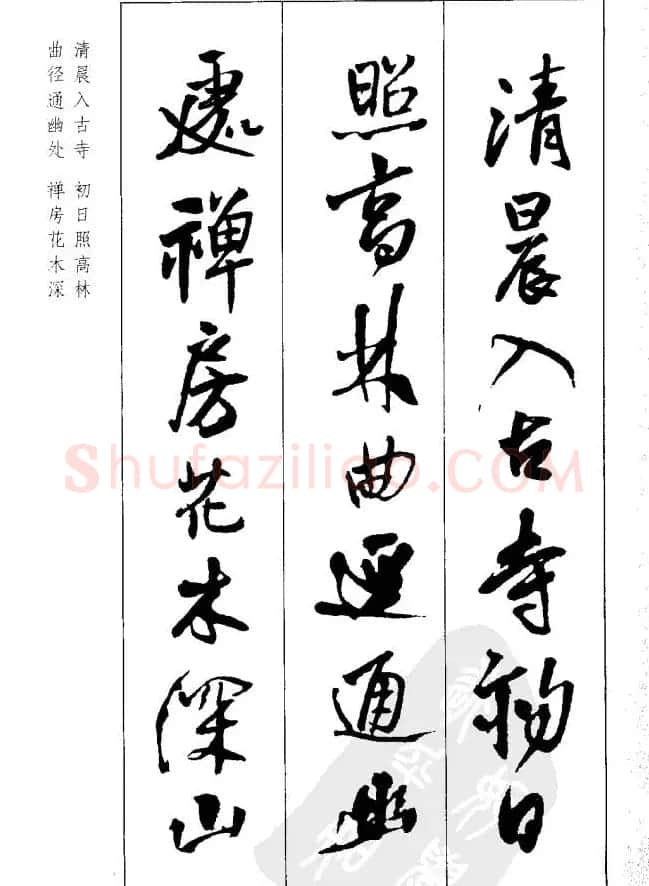 清晨入古寺初日
照高林曲迳通幽
處禅房花木深山
清晨入古寺 初日照高林
曲径通幽处 禅房花木深
Shufaziliao.COM